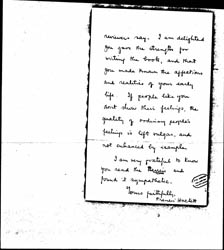 reviewers say. I am delighted
you gave the strength for
writing the book, and that
you made known the affections
and realities of your early
life. If people like you
dont show their feelings, the
quality of ordinary people's
feelings is left vulgar, and
not enhanced by example.
I am very grateful to know
you read the and
found it sympathetic.
Yours faithfully,